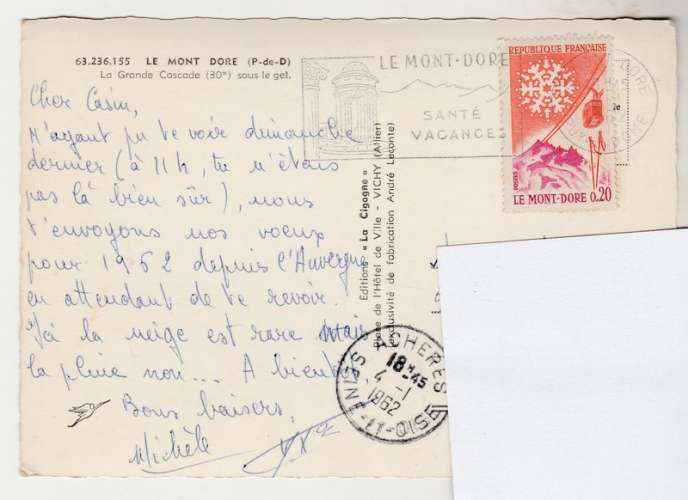 63.236.155 LE MONT DORE (P-de-D)
La Grande Cascade (30m) sous le gel.
Cher Casim,
N'ayant pu te voir dimanche
dernier (à 11h, tu n'étais
pas là bien sûr), nous
t'envoyons nos voeux
pour 1962 depuis l'Auvergne
en attendant de te revoir.
Ici la neige est rare mais
la pluie non... A bientôt
Bons baisers,
Michèle
Editions « La Cigogne »
Place de l'Hôtel de Ville - VICHY (Allier)
exclusivité de fabrication André Leconte
LE MONT-DORE
SANTÉ
VACANCES
REPUBLIQUE FRANÇAISE
POSTES
LE MONT-DORE 0,20
DORE
DOME
ACHERES
18H45
4-1
1962
SEINE-ET-OISE